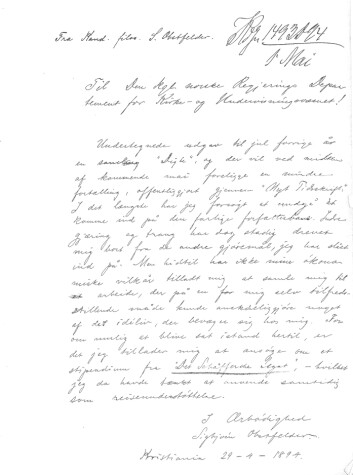 Fra Kand. filos. S. Obstfelder.
Kfj. 1493 D 94
1 Mai
Til Den kgl. norske Regjerings Depar-
tement for Kirke- og Undervisningsvæsenet!
Undertegnede udgav til jul forrige år
en samling "Digte", og der vil ved midten
af kommende mai foreligge en mindre
fortælling, offentligjort gjennem "Nyt Tidsskrift".
I det længste har jeg forsøgt at undgå at
komme ind på den farlige forfatterbane.
og trang har dog stadig drevet
mig bort fra de andre gjøremål, jeg har slået
ind på. Men hidtil har ikke mine økono-
miske vilkår tilladt mig at samle mig til
et arbeide, der på en for mig selv tilfreds-
stillende måde kunde anskueliggjøre noget
af det idéliv, der bevæger sig hos mig. For
om mulig at blive sat istand hertil, er
det jeg tillader mig at ansøge om et
stipendium fra "Det Schäfferske Legat", – hvilket
jeg da havde tænkt at anvende samtidig
som reiseunderstøttelse.
I Ærbødighed
Sigbjørn Obstfelder.
Kristiania 29 - 4 - 1894.